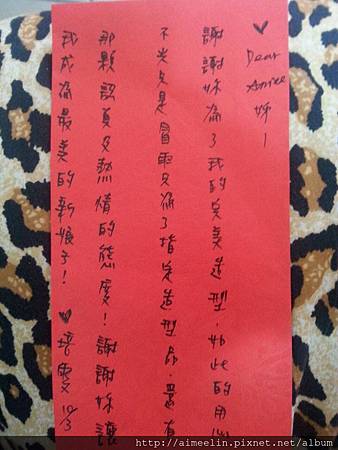 ♥ Dear Aimee 姊!
謝謝妳為了我的完美造型,如此的用心
不光只是冒雨只為了指定造型品,還有
那顆認真又熱情的態度!謝謝妳讓
我成為最美的新娘子! ♥ 培雯 10/3
http://aimeelin.pixnet.net/album